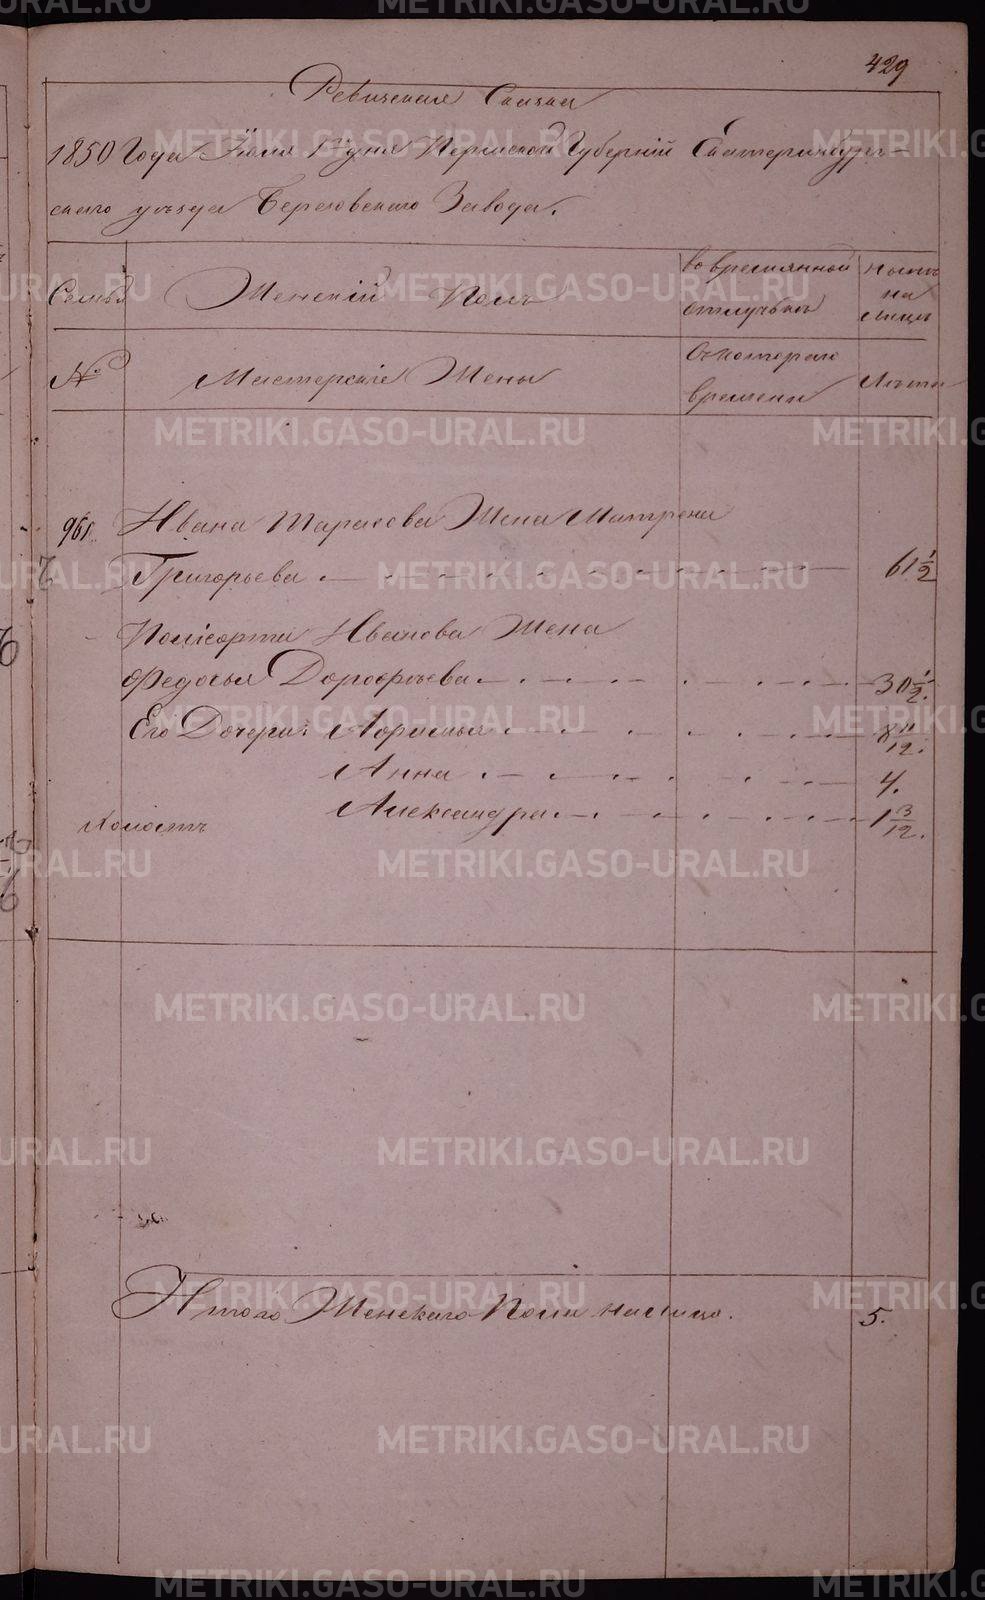 429
Ревизская Сказка
1850 Года Іюля 1 Дня Пермской Губерніи Екатеринбург-
скаго уѣзда Березовскаго Завода.
Семья
Женскій Полъ
во временной
отлучкѣ
нынѣ
на
лицѣ
№
Мастерскіе Жены
Съ котораго
времени
Лѣта
Ивана Тарасова Жена Матрена
Григорьева 61 1/2
Поликарпа Иванова Жена
Федосья Дорофѣева 30 1/2.
Его Дочери: Апросинья 8 11/12.
Анна 4.
Александра 1 3/12.
Холостъ
Итого Женскаго Пола на лицо. 5.
METRIKI.GASO-URAL.RU